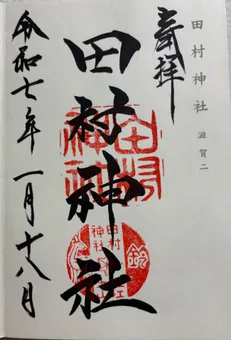 田村神社 滋賀二
奉拝
田村神社
令和七年一月十八日
田村神社